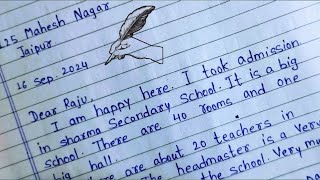 125 Mahesh Nagar
Jaipur
16 Sep. 2024
Dear Raju,
I am happy here. I took admission
in sharma Secondary School. It is a big
school. There are 40 rooms and one
big hall.
are about 20 teachers in
The headmaster is a very
the school. Very mu